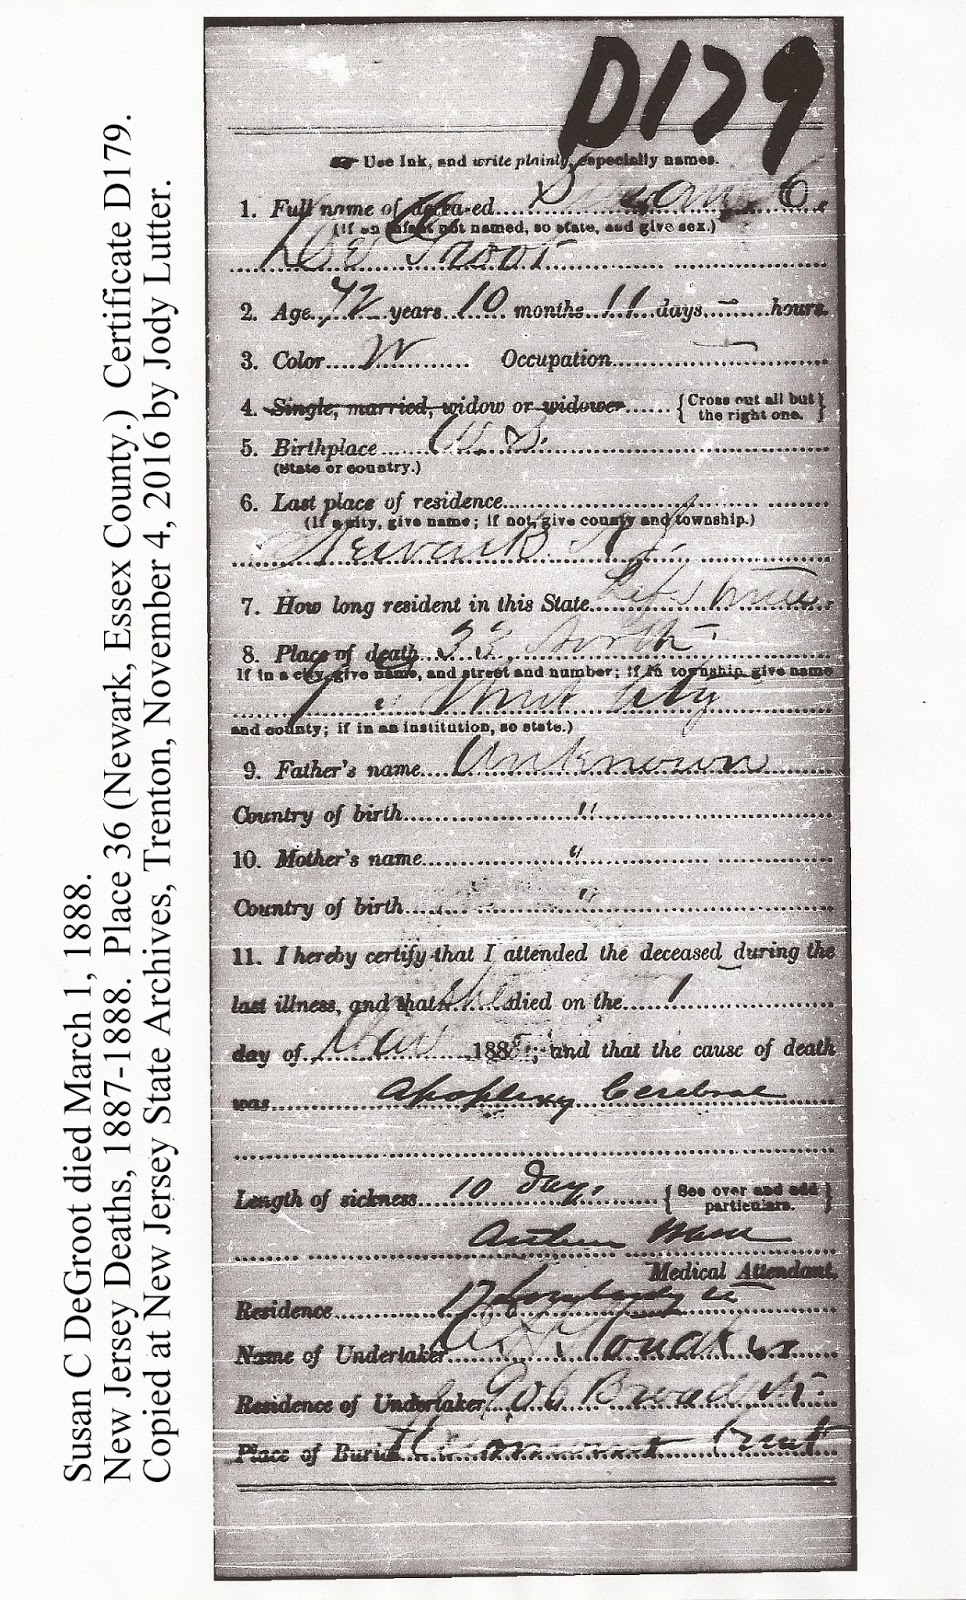 Susan C DeGroot died March 1, 1888.
New Jersey Deaths, 1887-1888. Place 36 (Newark, Essex County.) Certificate D179.
Copied at New Jersey State Archives, Trenton, November 4, 2016 by Jody Lutter.
D179
Use Ink, and write plainly, especially names.
1. Full name of deceased Susan C.
(If an infant not named, so state, and give sex.)
De Groot
2. Age, 72 years 10 months 11 days — hours.
3. Color W Occupation —
4. Single, married, widow or widower {Cross out all but the right one.}
5. Birthplace U.S.
(State or country.)
6. Last place of residence
(If a city, give name; if not, give county and township.)
Newark N.J.
7. How long resident in this State Life time
8. Place of death 33 North
If in a city, give name, and street and number; if in township give name
City
and county; if in an institution, so state.)
9. Father's name Unknown
Country of birth "
10. Mother's name "
Country of birth "
11. I hereby certify that I attended the deceased during the
last illness, and that she died on the 1
day of Mar 1888; and that the cause of death
was Apoplexy Cerebral
Length of sickness 10 days {See over and add particulars.}
Arthur Ward
Medical Attendant.
Residence 17
Name of Undertaker
Residence of Undertaker 906 Broad st.
Place of Burial